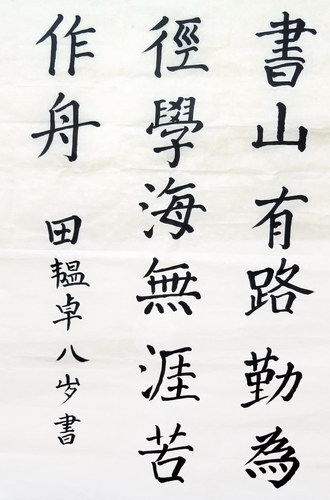 書山有路勤為
徑學海無涯苦
作舟
田韞卓八岁書